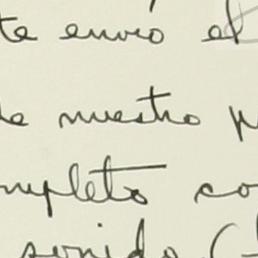 te envío el
de nuestro p
mpleto co
sonido (